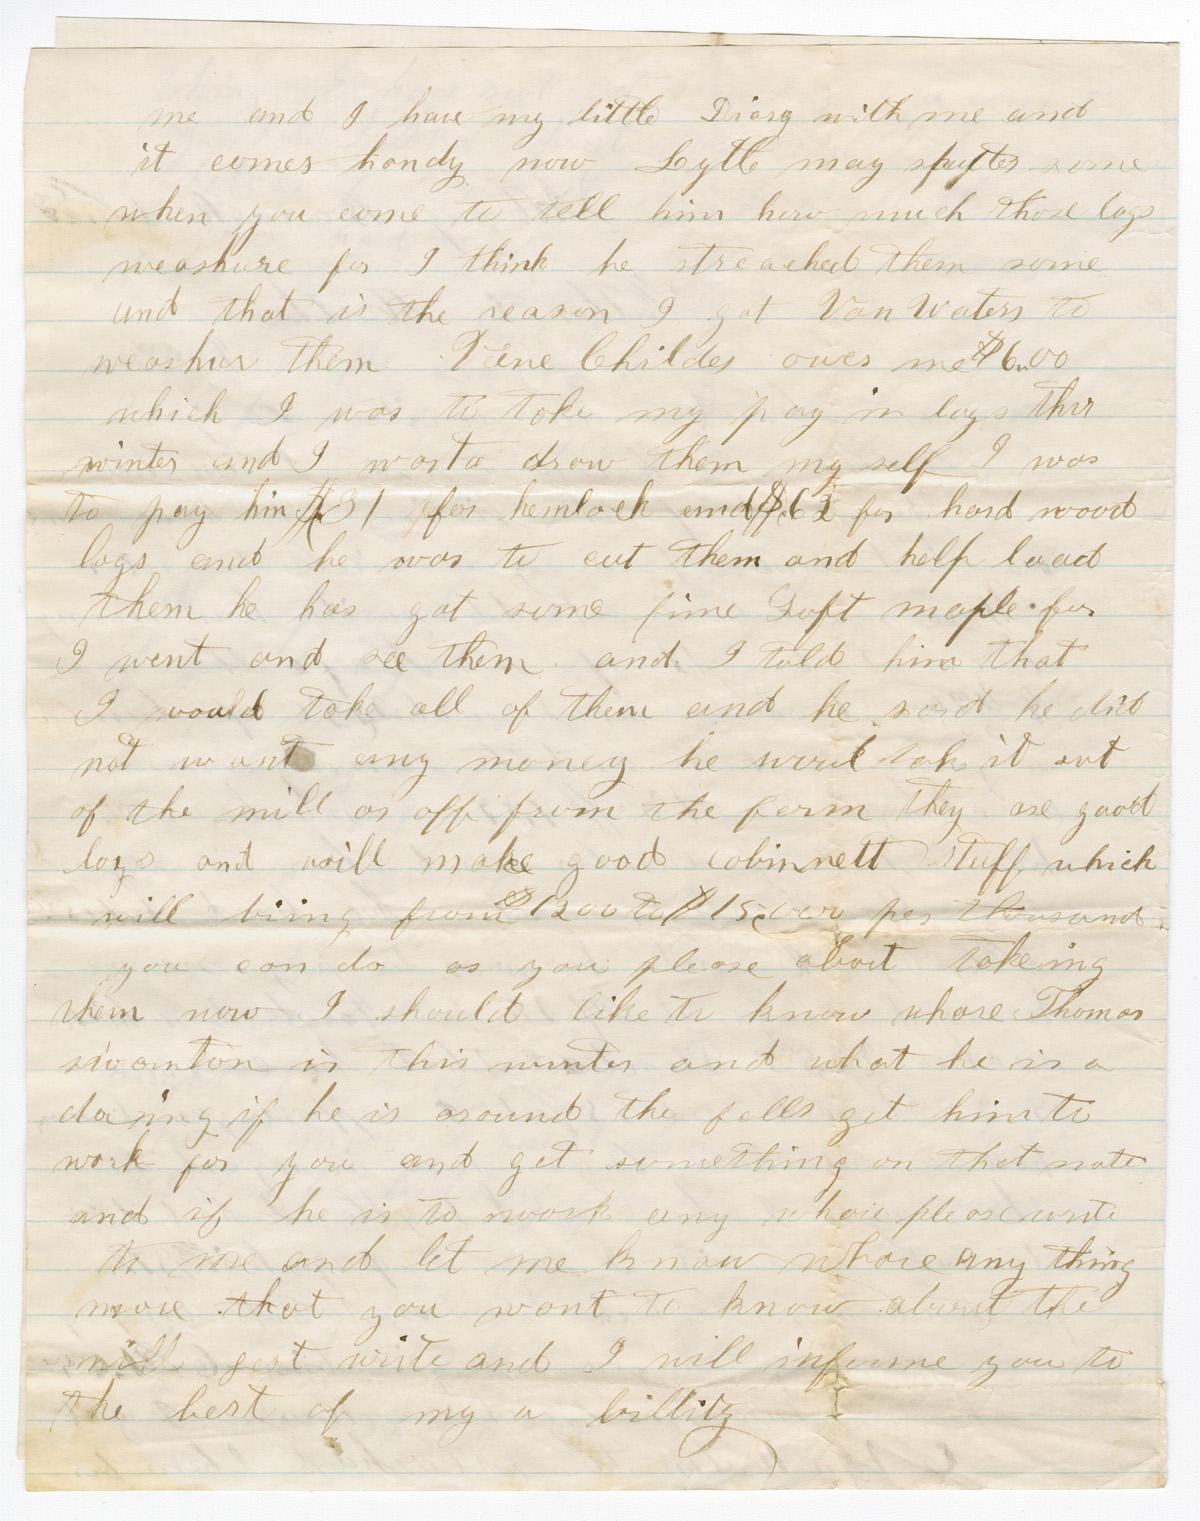 me and I have my little Diary with me and
it comes handy now Lytle may sputter some
when you come to tell him how much those logs
weashure for I think he streached them some
and that is the reason I got Van Waters to
weashur them Childes owes me $6.00
which I was to take my pay in logs this
winter and I was to draw them my self I was
to pay him $31 for hemlock and $ for hard wood
logs and he was to cut them and help load
them he has got some fine Soft maple for
I went and see them and I told him that
I would take all of them and he said he did
not want any money he woul tak it out
of the mill or off from the farm They are good
logs and will make good cobinnett stuff which
will bring from $1200 to $15.00 per thousand
you can do as you please about takeing
them now I should like to know whare Thomas
swanton is this winter and what he is a
doaing if he is around the falls get him to
work for you and get something on that note
and if he is to work any whare please write
to me and let me know whare any thing
more that you want to know about the
mill gest write and I will informe you to
the best of my a billity